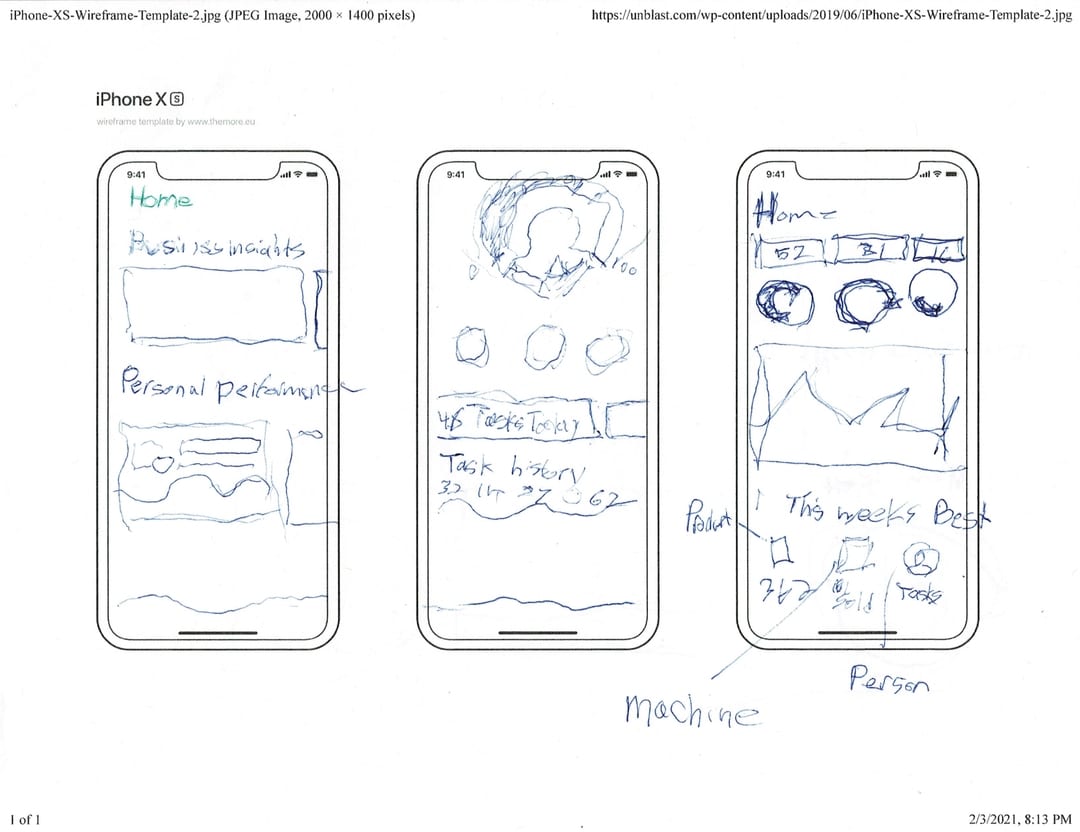 iPhone-XS-Wireframe-Template-2.jpg (JPEG Image, 2000 × 1400 pixels)
https://unblast.com/wp-content/uploads/2019/06/iPhone-XS-Wireframe-Template-2.jpg
iPhone X S
wireframe template by www.themore.eu
9:41
Home
Business insights
Personal performance
9:41
0
100
48 Tasks Today
Task history
32 14 27 62
9:41
Home
52 31 16
This weeks Best
Product
Tasks
Machine
Person
1 of 1
2/3/2021, 8:13 PM